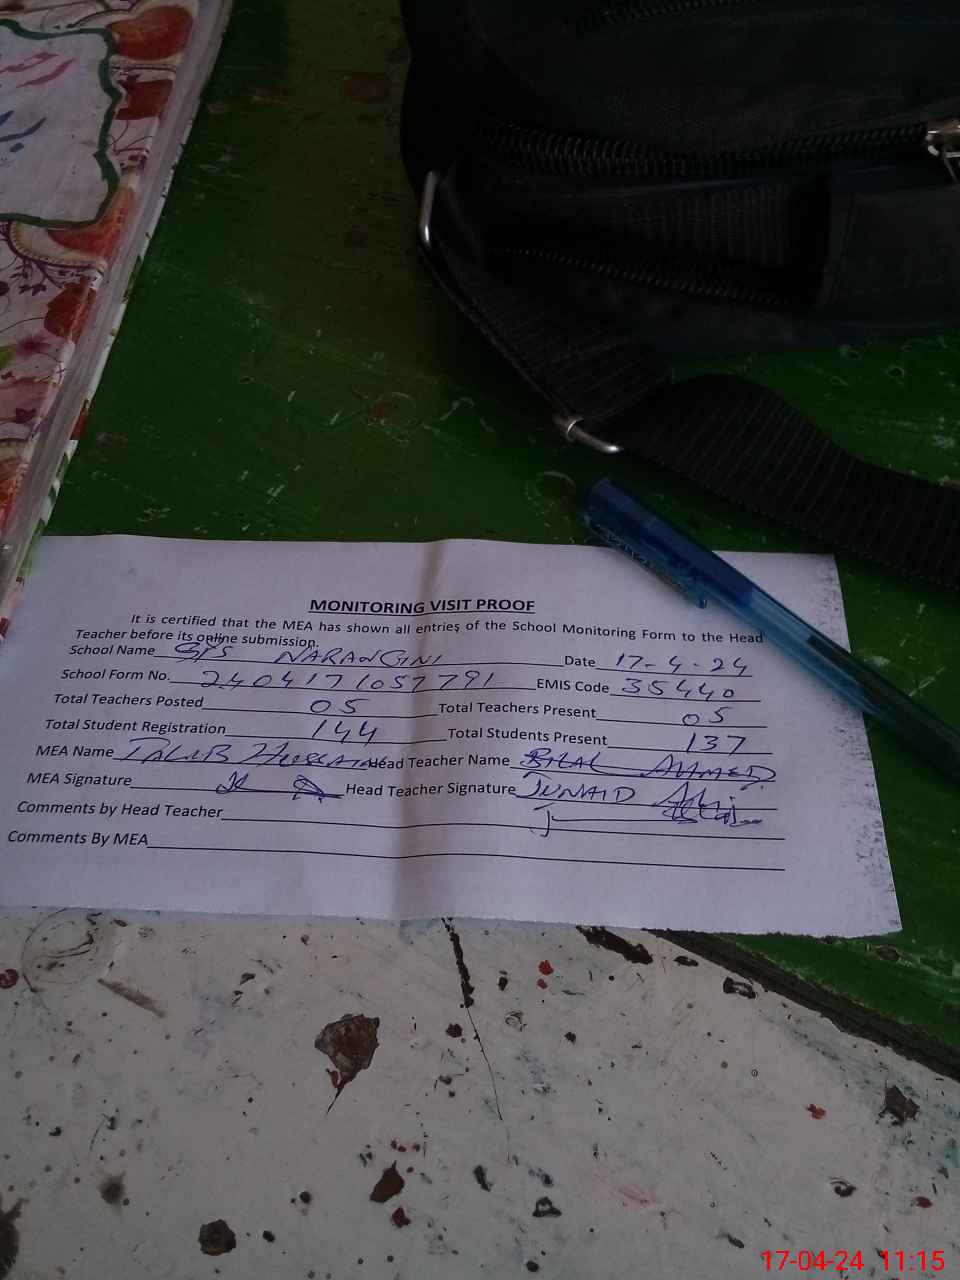 MONITORING VISIT PROOF
It is certified that the MEA has shown all entries of the School Monitoring Form to the Head
Teacher before its online submission.
School Name GPS NARANGINI Date 17-4-24
School Form No. 2404171057791 EMIS Code 35440
Total Teachers Posted 05 Total Teachers Present 05
Total Student Registration 144 Total Students Present 137
MEA Name TALUB HUSSAIN Head Teacher Name BILAL AHMED
MEA Signature Head Teacher Signature JUNAID
Comments by Head Teacher
Comments By MEA
17-04-24 11:15